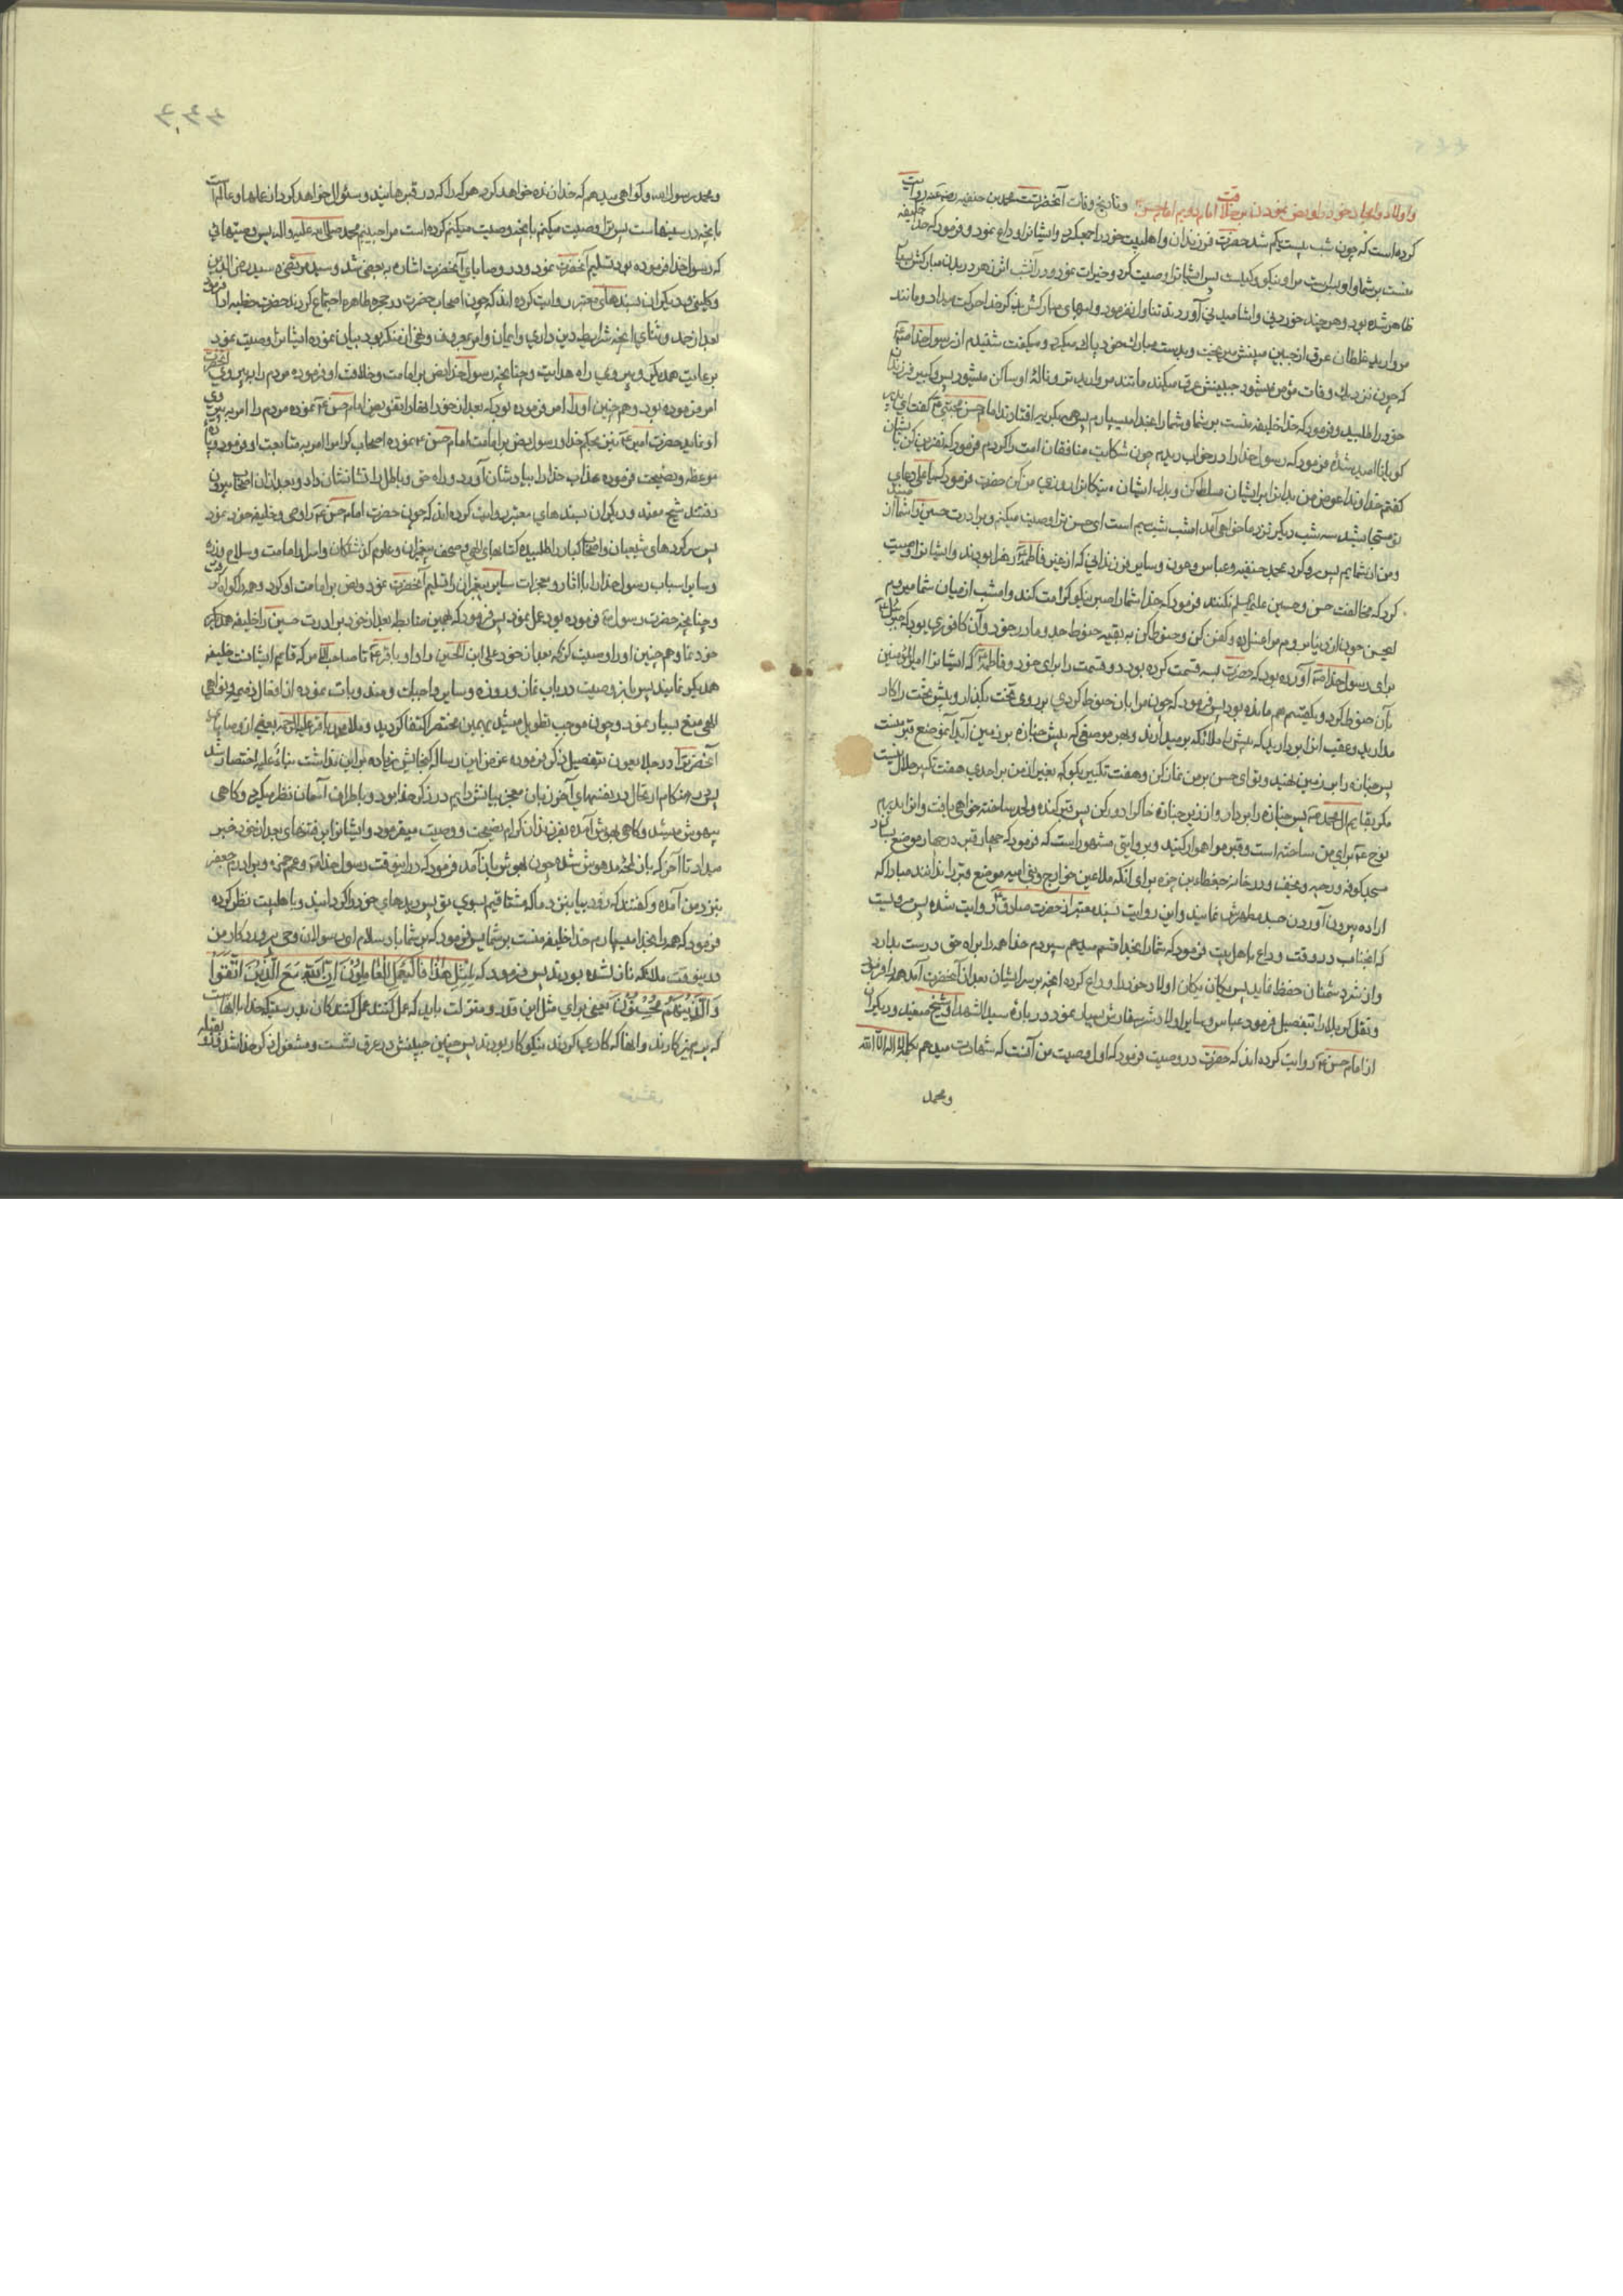 و اولاد و امجاد خود را و نص نمودن بر خلافت امام دویم امام حسن و تاریخ وفات آنحضرت محمد بن حنفیه رضی عنه روایت
کرده است که چون شب بیست یکم شد حضرت فرزندان و اهلبیت خود را جمع کرد و ایشانرا وداع نمود و فرمود که خدا خلیفه
منست بر شما و او بس است مرا و نیکو وکیلیست پس ایشانرا وصیت کرد و خیرات نمود و در آنشب اثر زهر در بدن مبارکش بسیار
ظاهر شده بود و هر چند خوردنی و آشامیدنی آوردند تناول نفرمود و لبهای مبارکش بذکر خدا حرکت میداد و مانند
مروارید غلطان عرق از جبین مبینش میریخت و بدست مبارک خود پاک میکرد و میگفت شنیدم از رسول خدا
که چون نزدیک وفات مؤمن میشود جبینش عرق میکند مانند مروارید تر و ناله او ساکن میشود پس و کبیر فرزندان
خود را طلبید و فرمود که خدا خلیفه منست بر شما و شما را بخدا میسپارم پس همه بگریه افتادند امام حسن مجتبی گفت ای پدر
گویا ناامید شدهٔ فرمود که رسول خدا را در خواب دیدم چون شکایت منافقان امت را کردم فرمود که نفرین کن بایشان
گفتم خداوندا عوض من بدانرا بر ایشان مسلط کن و بدل ایشان نیکانرا روزی من کن حضرت فرمود که یا علی دعای
تو مستجاب شد سه شب دیگر نزد ما خواهی آمد امشب شب سیم است ای حسن ترا وصیت میکنم و برادرت حسین را شما از منید
و من از شمایم پس رو کرد بمحمد حنفیه و عباس و عون و سایر فرزندانی که از غیر فاطمه زهرا بودند و ایشانرا وصیت
کرد که مخالفت حسن و حسین علیهم السلم نکنند فرمود که خدا شما را صبر نیکو کرامت کند و امشب از میان شما میروم
ایحسن چون از دنیا بروم مرا غسل ده و کفن کن و حنوط کن به بقیه حنوط جد و مادر خود و آن کافوری بود که جبرئیل
برای رسول خدا آورده بود که حضرت بسه قسمت کرده بود دو قسمت را برای خود و فاطمه که ایشانرا امیرالمؤمنین
بآن حنوط کرد و یکقسم هم مانده بود پس فرمود که چون مرا بآن حنوط کردی بر روی تخت بگذار و پیش تخت را کار
مدارید و عقب آنرا بردارید که پیش را ملائکه برمیدارند و بهر موضعی که پیش جنازه بر زمین آید آنموضع قبر منست
پس جنازه را بر زمین نهید و تو ای حسن بر من نماز کن و هفت تکبیر بگو که بغیر از من بر احدی هفت تکبیر حلال نیست
مگر بقایم آل محمد پس جنازه را بردار و از زیر جنازه خاک را دور کن پس قبر کنده و لحد ساخته خواهی یافت و آنرا پدرم
نوح برای من ساخته است و قبر مرا هموار کنید و بروایتی مشهور است که فرمود که چهار قبر در چهار موضع بسازد
مسجد کوفه و رحبه و نجف و در خانه جعده بن هبیره برای آنکه ملاعین خوارج و بنی امیه موضع قبر را ندانند مبادا که
اراده بیرون آوردن جسد مطهرش نمایند و این روایت بسند معتبر از حضرت صادق روایت شده پس مرویست
که آنجناب در وقت وداع با اهل بیت فرمود که شما را بخدا قسم میدهم سپردم خدا همه را بر راه حق درست بدارد
و از شر دشمنان حفظ نماید پس یکان یکان اولاد خود را وداع کرده آنچه بر سر ایشان بعد از آنحضرت آمد همه را فرمود
و نقل کربلا را بتفصیل فرمود عباس و سایر اولاد شریف سفارش بسیار نمود در بارهٔ سید الشهدا و شیخ مفید و دیگران
از امام حسن روایت کرده‌اند که حضرت در وصیت فرمود که اول وصیت من آنست که شهادت میدهم بکلمه لا اله الا الله
و محمد
و محمد رسول الله و گواهی میدهم که خدا زنده خواهد کرد هر که را که در قبرهایند و سئوال خواهد کرد از عملها و عالم است
بآنچه در سینهاست پس ترا وصیت میکنم بآنچه وصیت میکنم کرده است مرا حبیبم محمد صلی الله علیه و اله پس وصیتهایی
که رسول خدا فرموده بود تسلیم آنحضرت نمود و در وصایای آنحضرت اشاره به بعضی شد و سید مرتضی و سید رضی الدین
و کلینی و دیگران بسندهای معتبر روایت کرده‌اند که چون اصحاب حضرت در حجره طاهره اجتماع کردند حضرت خطبه ادا فرمود
بعد از حمد و ثنای الهی آنچه شرایط دین داری و ایمان و امر بمعروف و نهی از منکر بود بیان نموده ایشانرا وصیت نمود
برعایت همدیگر و پیروی راه هدایت و چنانچه رسول خدا نص بر امامت و خلافت او فرموده مردم را به پیروی آنحضرت
امر فرموده بود و هم چنین او را امر فرموده بود که بعد از خود نص امام حسن نموده مردم را امر به پیروی
او نماید حضرت امیر نیز بحکم خدا و رسول نص بر امامت امام حسن نموده اصحاب کرام را امر به متابعت او فرمود و
موعظه و نصیحت فرموده عذاب خدا را بیادشان آورد و راه حق و باطل را نشانشان داد و بعد از آن اصحاب بیرون
رفتند شیخ مفید و دیگران بسندهای معتبر روایت کرده‌اند که چون حضرت امام حسن را وصی و خلیفه خود نمود
پس سرکردهای شیعیان و اصحاب کبار را طلبیده کتابهای الهی و صحف پیغمبران و علوم گذشتگان و اسرار امامت و سلاح
و سایر اسباب رسول خدا را با آثار و معجزات سایر پیغمبران را تسلیم آنحضرت نمود و نص بر امامت او کرد و همه را گواه گرفت
و چنانچه حضرت رسول فرموده بود عمل نمود پس فرمود که بهمین ضابطه بعد از خود برادرت حسین را خلیفه
خود نما و هم چنین او را وصیت کن که بعد از خود علی ابن الحسین را و او باقر را تا صاحب الامر که قایم ایشانست خلیفه
همدیگر نمایند پس باز وصیت در باب نماز و روزه و سایر واجبات و مندوبات نموده از افعال ذمیمه و نواهی
الهی منع بسیار نمود و چون موجب تطویل میشد بهمین مختصر اکتفا کردید و ملا محمد باقر علیه الرحمه بعضی از وصایای
آنحضرت را در جلاء العیون بتفصیل ذکر فرموده عرض این رساله گنجایش زیاده بر این نداشت بناءً علیه اختصار شد
پس در هنگام ارتحال در نفسهای آخر زبان معجز بیانش دایم در ذکر خدا بود و باطراف آسمان نظر میکرد و گاهی
بیهوش میشد و گاهی بهوش آمده بفرزندان کرام نصیحت و وصیت میفرمود و ایشانرا بر فتنهای بعد از خود خبر
میداد تا آخر که بار لحظه مدهوش شده چون بهوش باز آمد فرمود که در اینوقت رسول خدا و عمم حمزه و برادرم جعفر
بنزد من آمده و گفتند که زود بیا بنزد ما که مشتاقیم بسوی تو پس دیدهای خود را گردانید و باهلبیت نظر کرده
فرمود که همه را بخدا میسپارم خدا خلیفه منست بر شما پس فرمود که بر شما باد سلام ای رسولان وحی پروردگار من
در اینوقت ملائکه نازل شده بودند پس فرمود که لِمِثْلِ هٰذا فَلْیَعْمَلِ الْعامِلُونَ اِنَّ اللهَ مَعَ الَّذینَ اتَّقَوْا
وَالَّذینَ هُمْ مُحْسِنُونَ یعنی برای مثل این قدر و منزلت باید که عمل کنند عمل کنندگان بدرستیکه خدا با آنهاست
که پرهیزکارند و آنها که کارهای کردند نیکوکار بودند پس جبین مبینش در عرق نشست و مشغول ذکر خدا شد